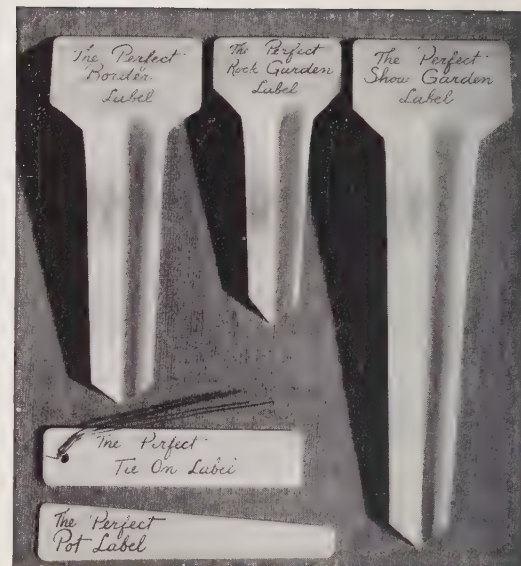 The Perfect
Border
Label
The Perfect
Rock Garden
Label
The 'Perfect
Show Garden
Label
The Perfect
Tie On Label
The 'Perfect
Pot Label